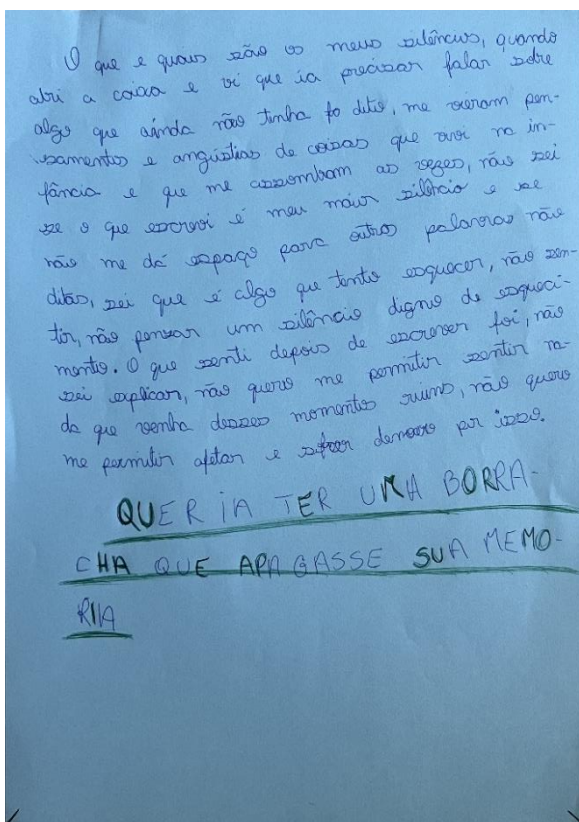 O que e quais são os meus silêncios, quando
abri a caixa e vi que ia precisar falar sobre
algo que ainda não tinha fo dito, me vieram pen-
samentos e angústias de coisas que ouvi na in-
fância e que me assombam as vezes, não sei
se o que escrevi é meu maior silêncio e se
não me dá espaço para outras palavras não
ditas, sei que é algo que tento esquecer, não sen-
tir, não pensar um silêncio digno de esqueci-
mento. O que senti depois de escrever foi, não
sei explicar, não quero me permitir sentir na-
da que venha desses momentos ruins, não quero
me permitir afetar e sofrer demais por isso.
QUERIA TER UMA BORRA-
CHA QUE APAGASSE SUA MEMO-
RIA